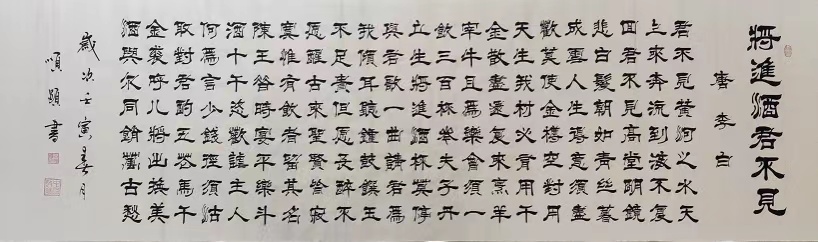 將進酒君不見
唐李白
君不見黃河之水天
上來奔流到海不復
回君不見高堂明鏡
悲白髮朝如青絲暮
成雪人生得意須盡
歡莫使金樽空對月
天生我材必有用千
金散盡還復來烹羊
宰牛且爲樂會須一
飲三百杯岑夫子丹
丘生將進酒杯莫停
與君歌一曲請君爲
我傾耳聽鍾鼓饌玉
不足貴但愿長醉不
愿醒古來聖賢皆寂
寞惟有飲者留其名
陳王昔時宴平樂斗
酒十千恣歡謔主人
何爲言少錢徑須沽
取對君酌五花馬千
金裘呼兒將出換美
酒與爾同銷萬古愁
歲次壬寅春月
顯書